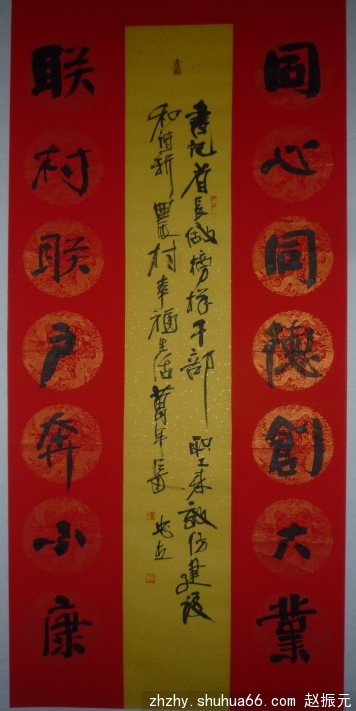 同心同德創大業
書记省长做榜样干部 职工来效仿建设
和谐新農村幸福生活萬年長
联村联户奔小康
zhzhy.shuhua66.com 赵振元